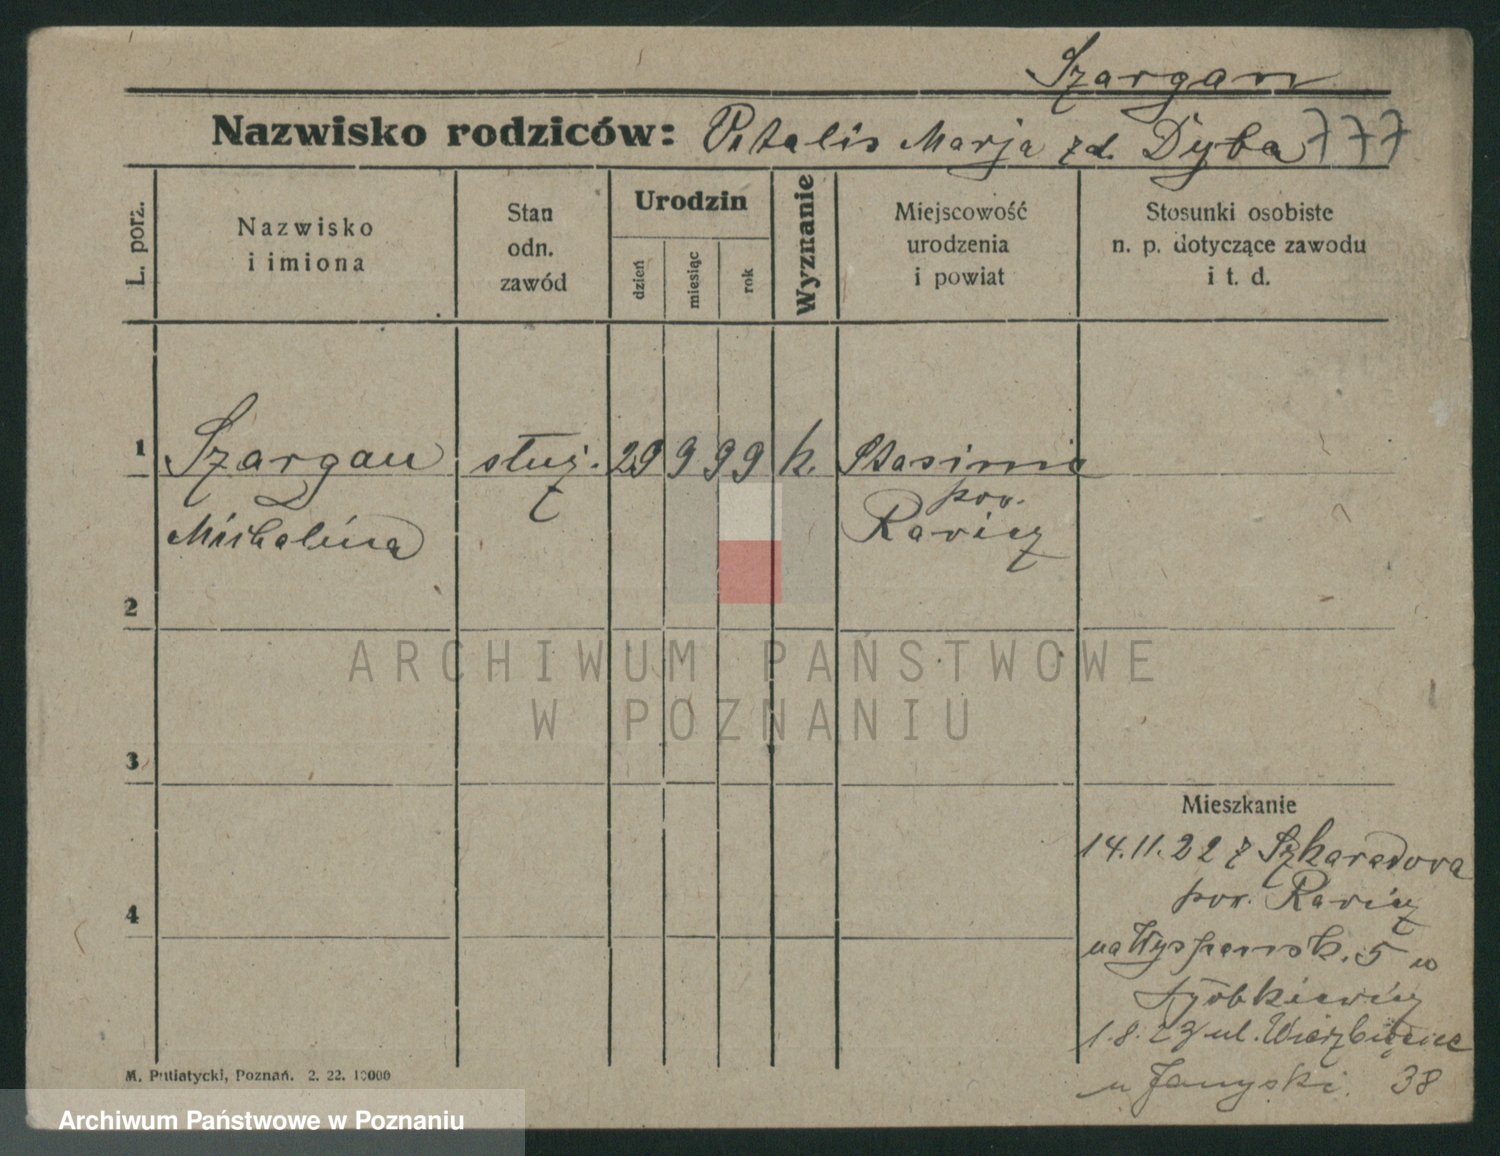 Szargan
Nazwisko rodziców: Vitalis Marja zd. Dyba 777
L. porz.
Nazwisko
i imiona
Stan
odn.
zawód
Urodzin
dzień
miesiąc
rok
Wyznanie
Miejscowość
urodzenia
i powiat
Stosunki osobiste
n. p. dotyczące zawodu
i t. d.
1 Szargan służ. 29 9 99 k. Stasimie
pow.
Michalina Rawicz
2
ARCHIWUM PAŃSTWOWE
W POZNANIU
3
Mieszkanie
14.11.22 z Szkaradowa
4
pow. Rawicz
na Wyspiańsk. 5 u
1.8.23 ul. Wierzbięcice
u Janyski. 38
M. Putiatycki, Poznań. 2. 22. 10000
Archiwum Państwowe w Poznaniu